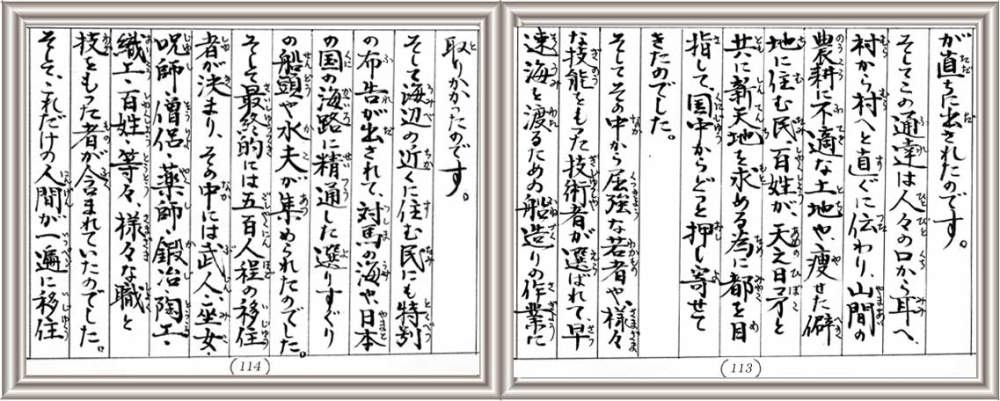 が直ちに出されたのです。
そしてこの通達は人々の口から耳へ、
村から村へと直ぐに伝わり、山間の
農耕に不適な土地や、痩せた僻
地に住む民、百姓が、天之日矛と
共に新天地を求める為に都を目
指して、国中からどっと押し寄せて
きたのでした。
そしてその中から屈強な若者や、様々
な技能をもった技術者が選ばれて、早
速海を渡るための船造りの作業に
(113)
取りかかったのです。
そして海辺の近くに住む民にも特別
の布告が出されて、対馬の海や、日本
の国の海路に精通した選りすぐり
の船頭や水夫が集められたのでした。
そして最終的には五百人程の移住
者が決まり、その中には武人、巫女・
呪師・僧侶・薬師・鍛冶・陶工・
織工・百姓・等々、様々な職と
技をもった者が含まれていたのでした。
そして、これだけの人間が一遍に移住
(114)